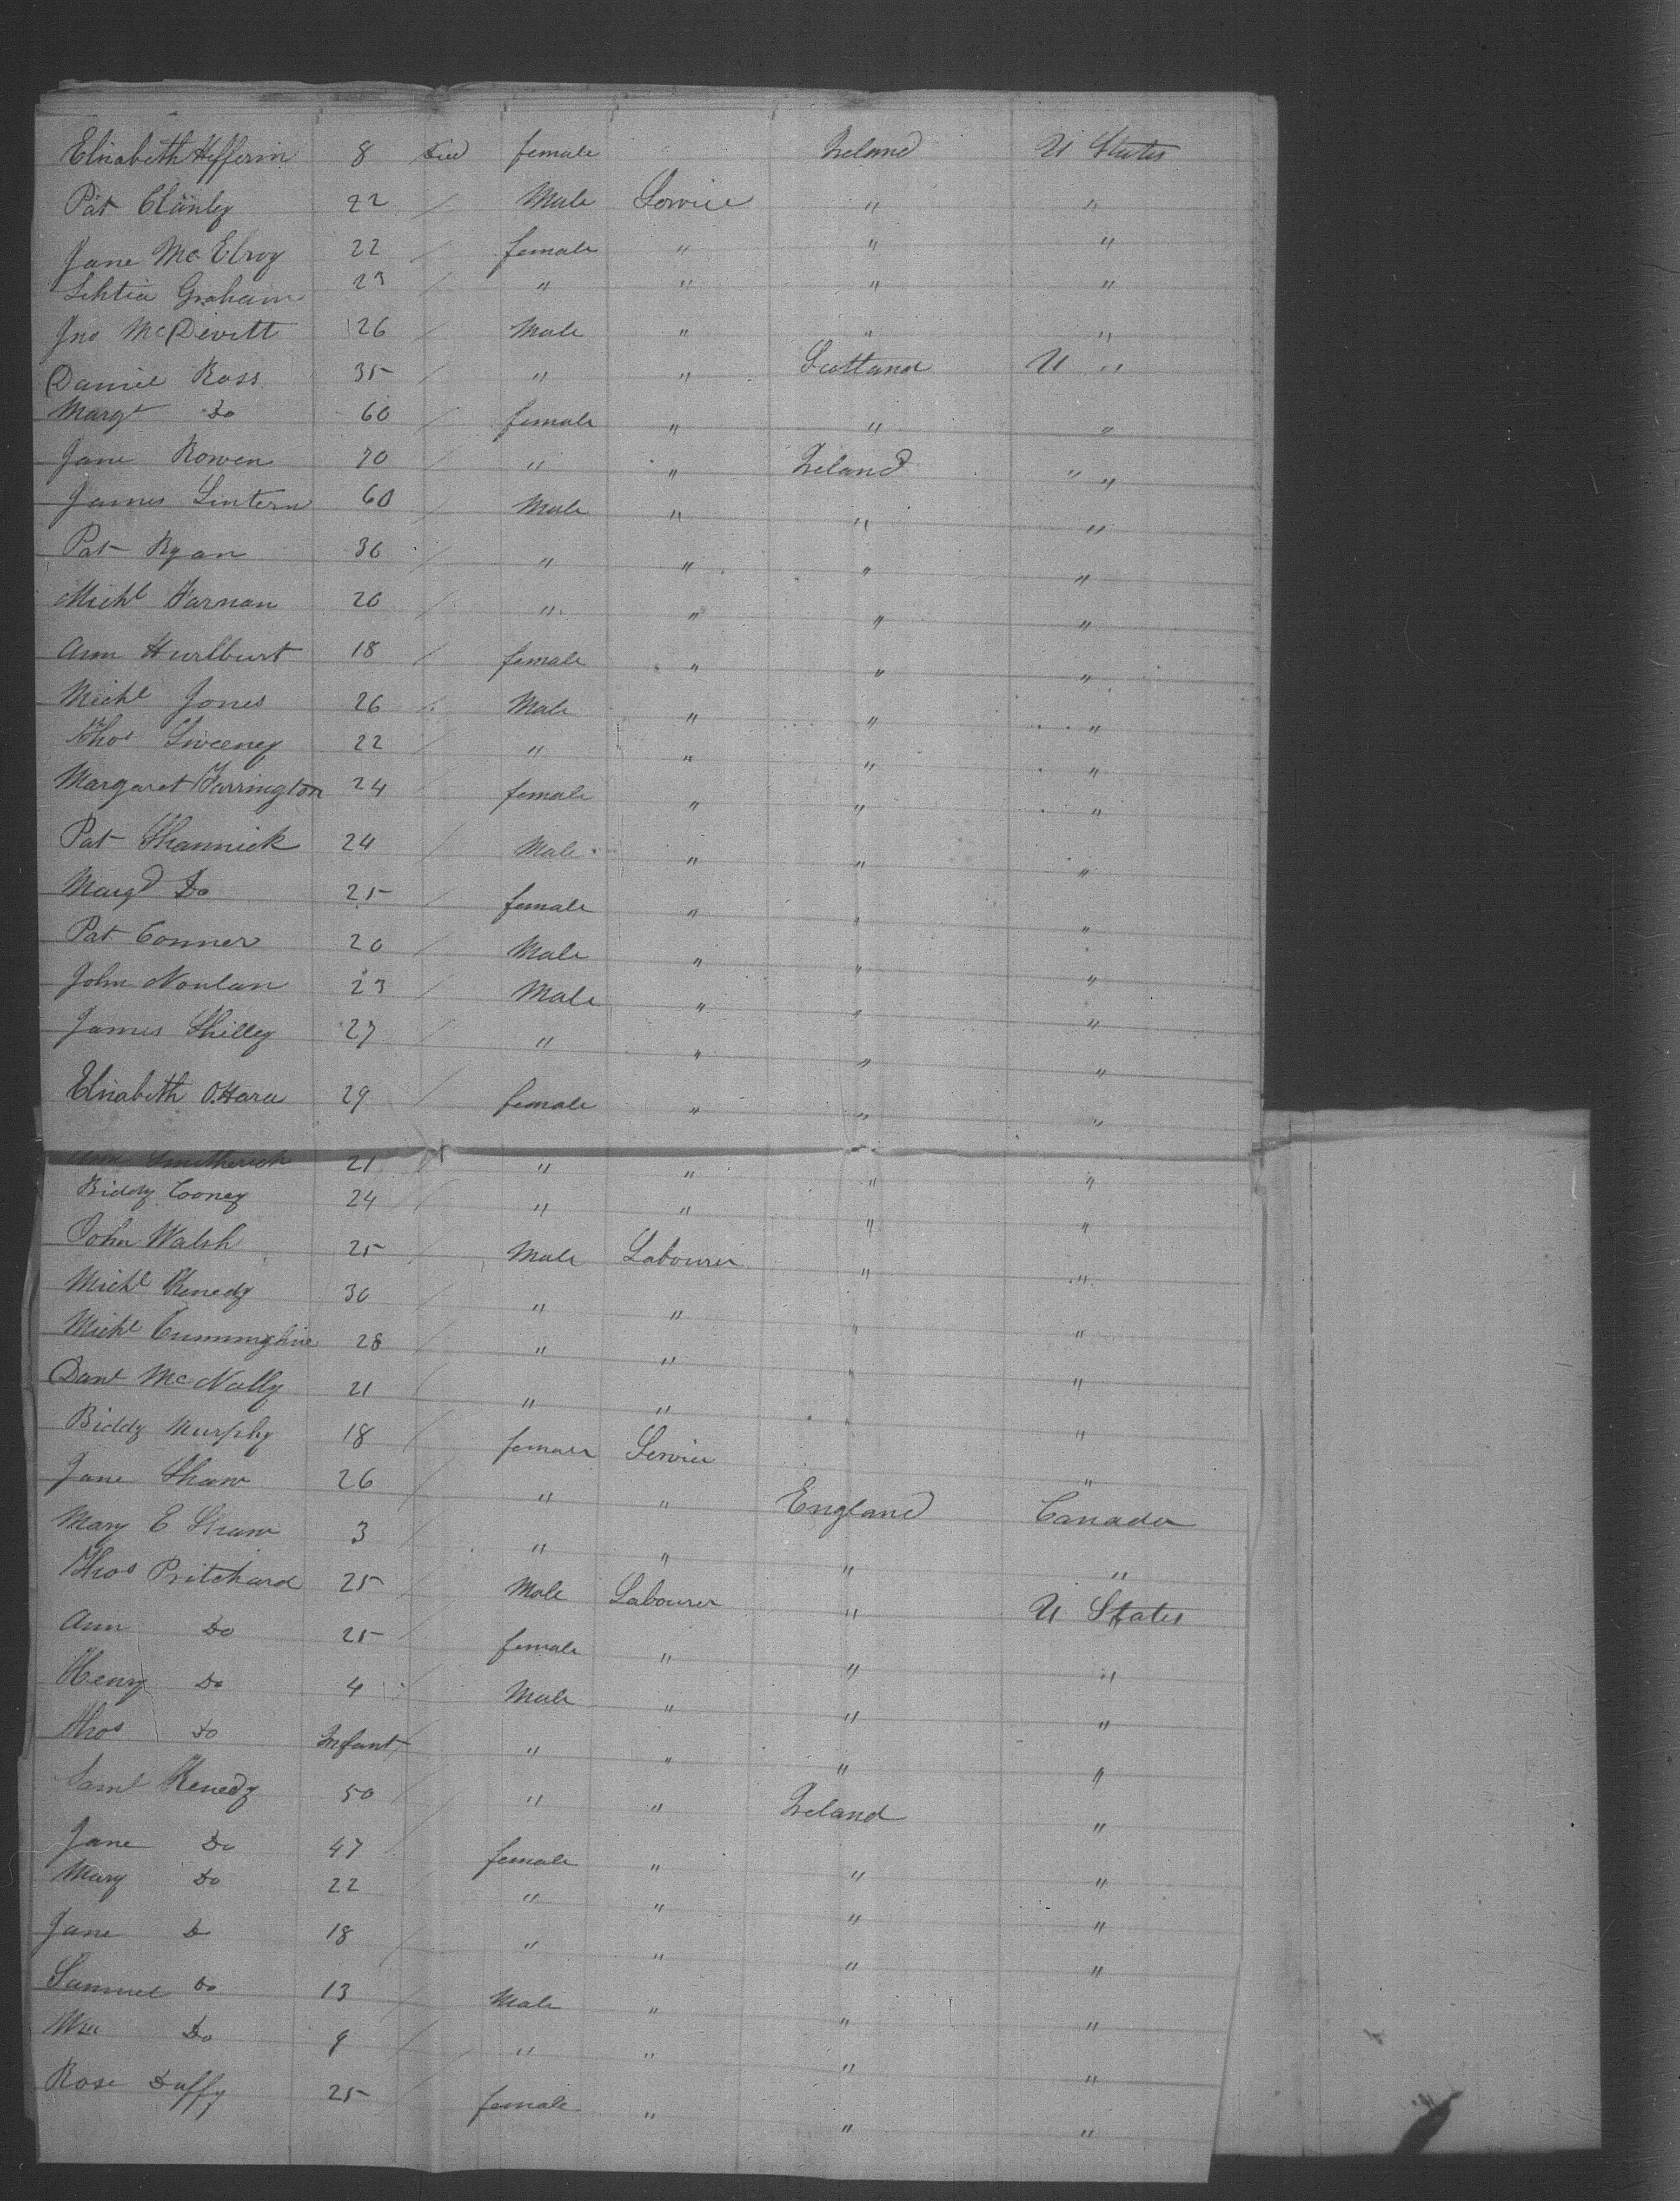 Elisabeth Hefferin 8 Died female Ireland U States
Pat Clanley 22 / Male Service " "
Jane McElroy 22 / female " " "
Letitia Graham 23 / " " " "
Jno McDevitt 26 / Male " " "
Daniel Ross 35 / " " Scotland U "
Margt Do 60 / female " " "
Jane Rowen 70 / " " Ireland " "
James Lintern 60 / Male " " "
Pat Ryan 36 / " " " "
Michl Farnan 26 / " " " "
Ann Hurlburt 18 / female " " "
Michl Jones 26 / Male " " "
Thos Sweeney 22 / " " " "
Margaret Farrington 24 / female " " "
Pat Shannick 24 / Male " " "
Margt Do 25 / female " " "
Pat Conner 20 / Male " " "
John Noulan 23 / Male " " "
James Shilley 27 / " " " "
Elisabeth O.Hara 29 / female " " "
Ann Smitherich 21 / " " " "
Biddy Cooney 24 / " " " "
John Walsh 25 / Male Labourer " "
Michl Kenedy 30 / " " " "
Michl 28 / " " " "
Danl McNally 21 / " " " "
Biddy Murphy 18 / female Service "
Jane Shaw 26 / " " England Canada
Mary E Shaw 3 / " " " "
Thos Pritchard 25 / Male Labourer " U States
Ann Do 25 / female " " "
Henry Do 4 / Male " " "
Thos Do Infant / " " " "
Saml Kenedy 50 / " " Ireland "
Jane Do 47 / female " " "
Mary Do 22 " " " "
Jane Do 18 / " " " "
Samuel Do 13 / Male " " "
Wm Do 9 / " " " "
Rose Duffy 25 / female " " "